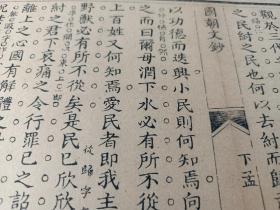 之民紂之民也何以去紂而歸
國朝文鈔
下孟
以功德而迭興小民則何知焉向
之而曰爾毋潤下水必有所不從
上百姓又何知焉愛民者即我主
從歸字
野獸必有所不從矣是民巳欣欣
紂之君下哀痛之令行罪已之詔
離上之心國有解體之